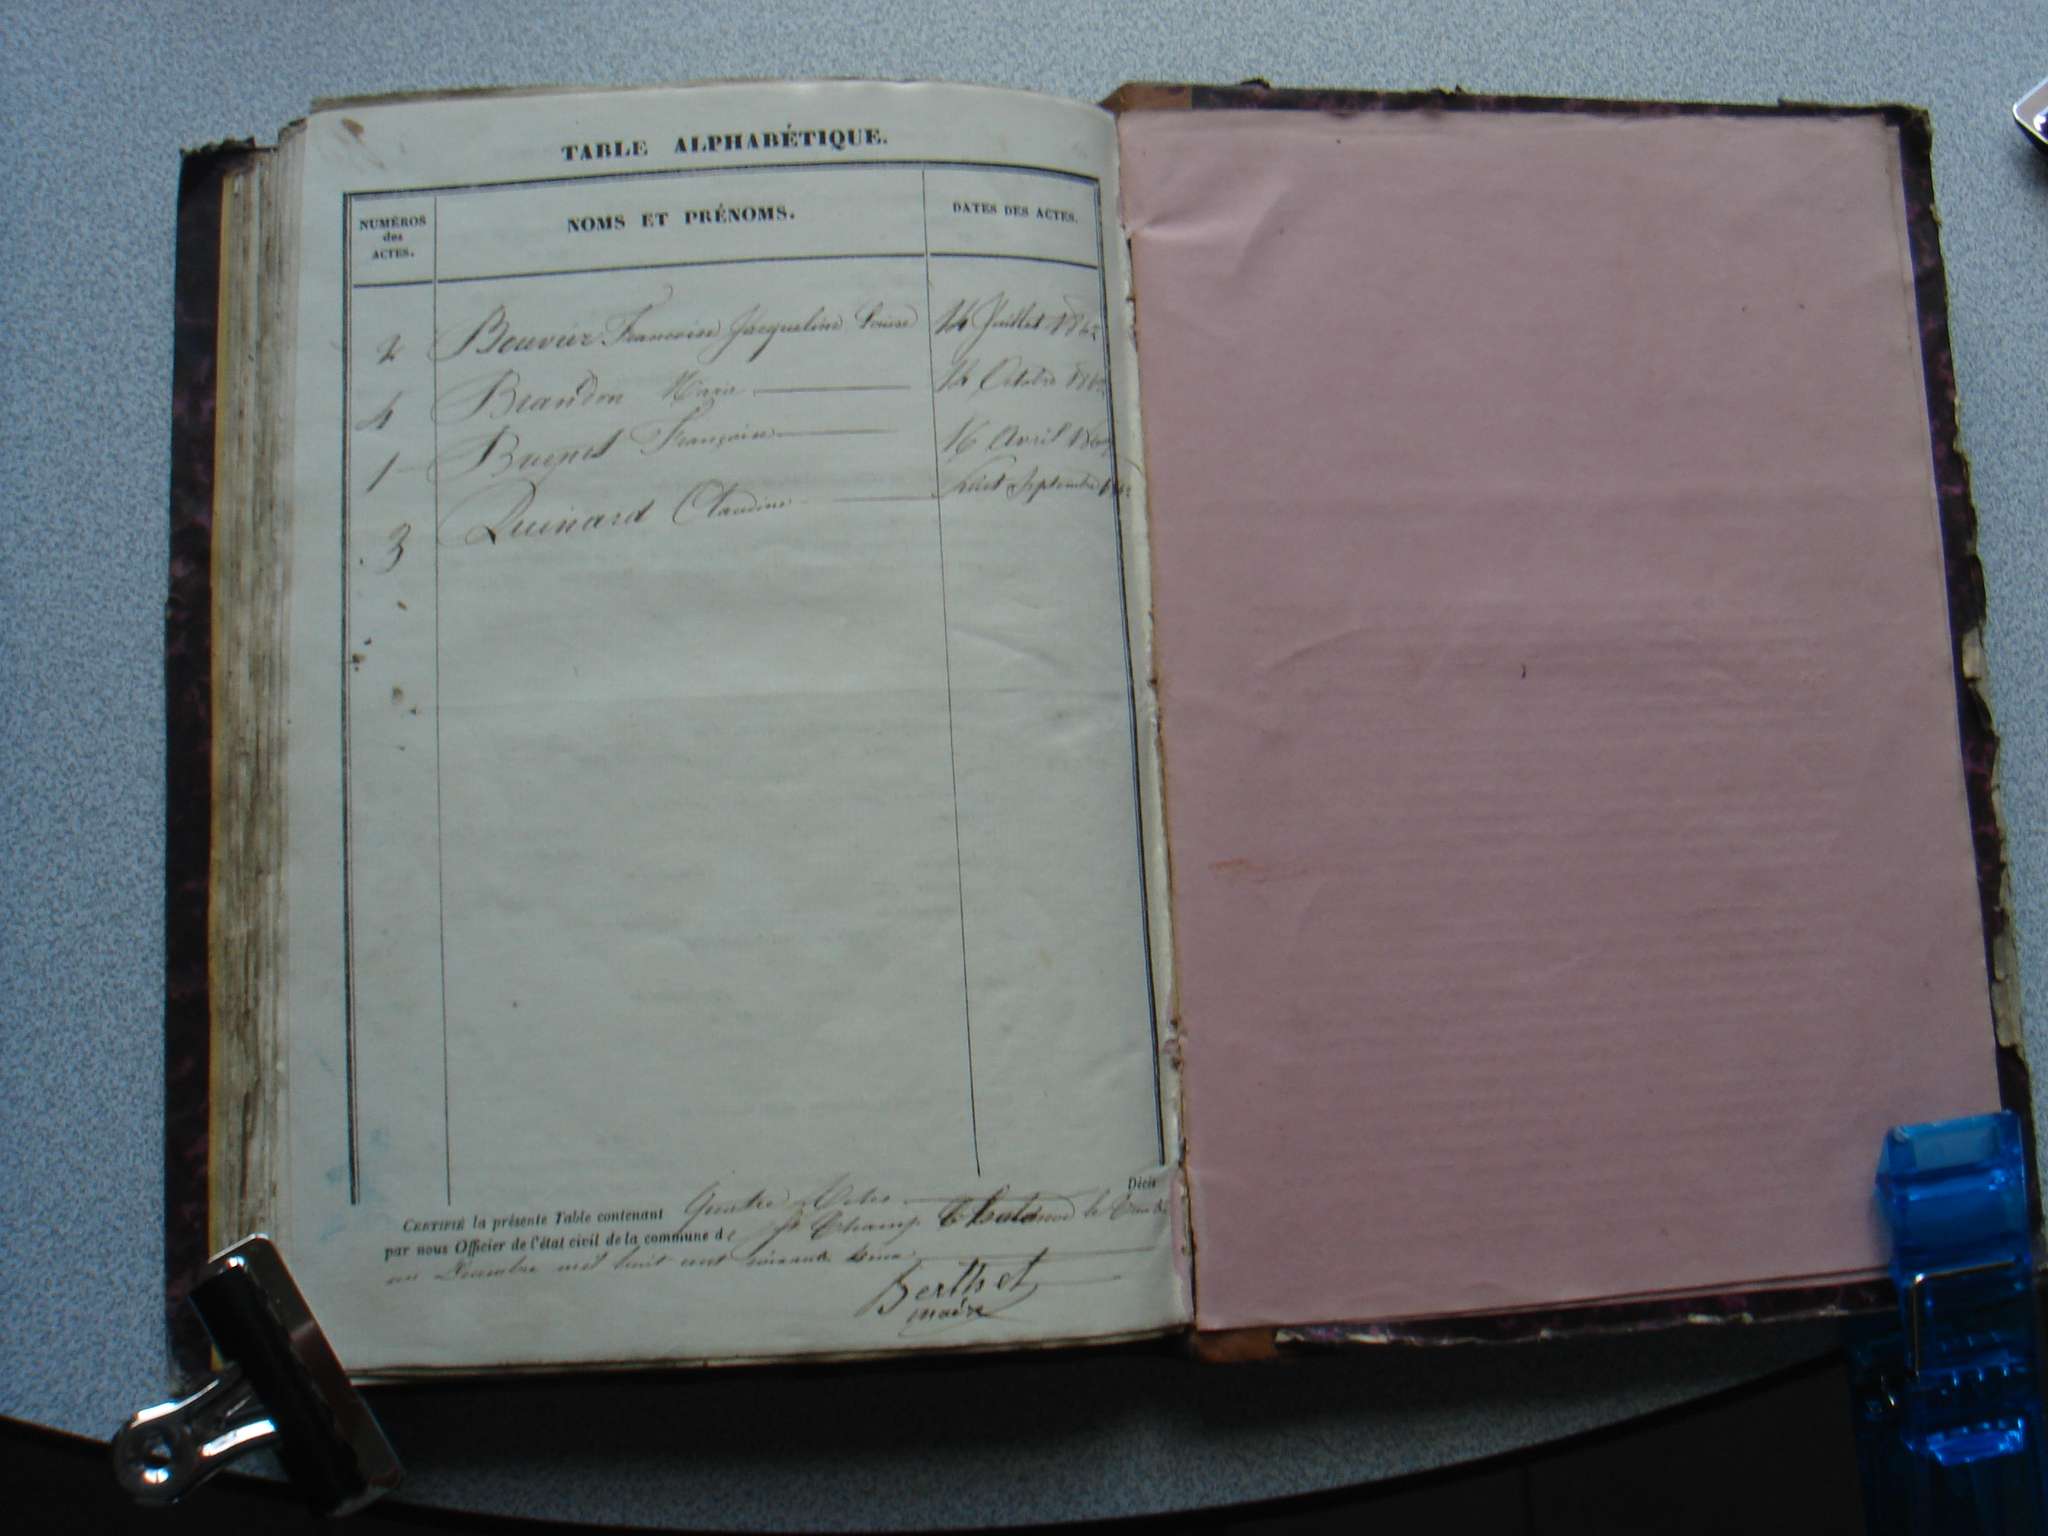 TABLE ALPHABÉTIQUE.
NUMÉROS des ACTES.
NOMS ET PRÉNOMS.
DATES DES ACTES.
2 Bouvier Francoise Jacqueline Louise 14 Juillet 186
4 Brandon Marie 14 Octobre 186
1 Buquet Françoise 16 Avril 186
3 Quinard Claudine huit Septembre
CERTIFIÉ la présente Table contenant quatre actes
par nous Officier de l'état civil de la commune de St Champ Chatonod le trente
un Décembre mil huit cent soixante
Berthet
maire